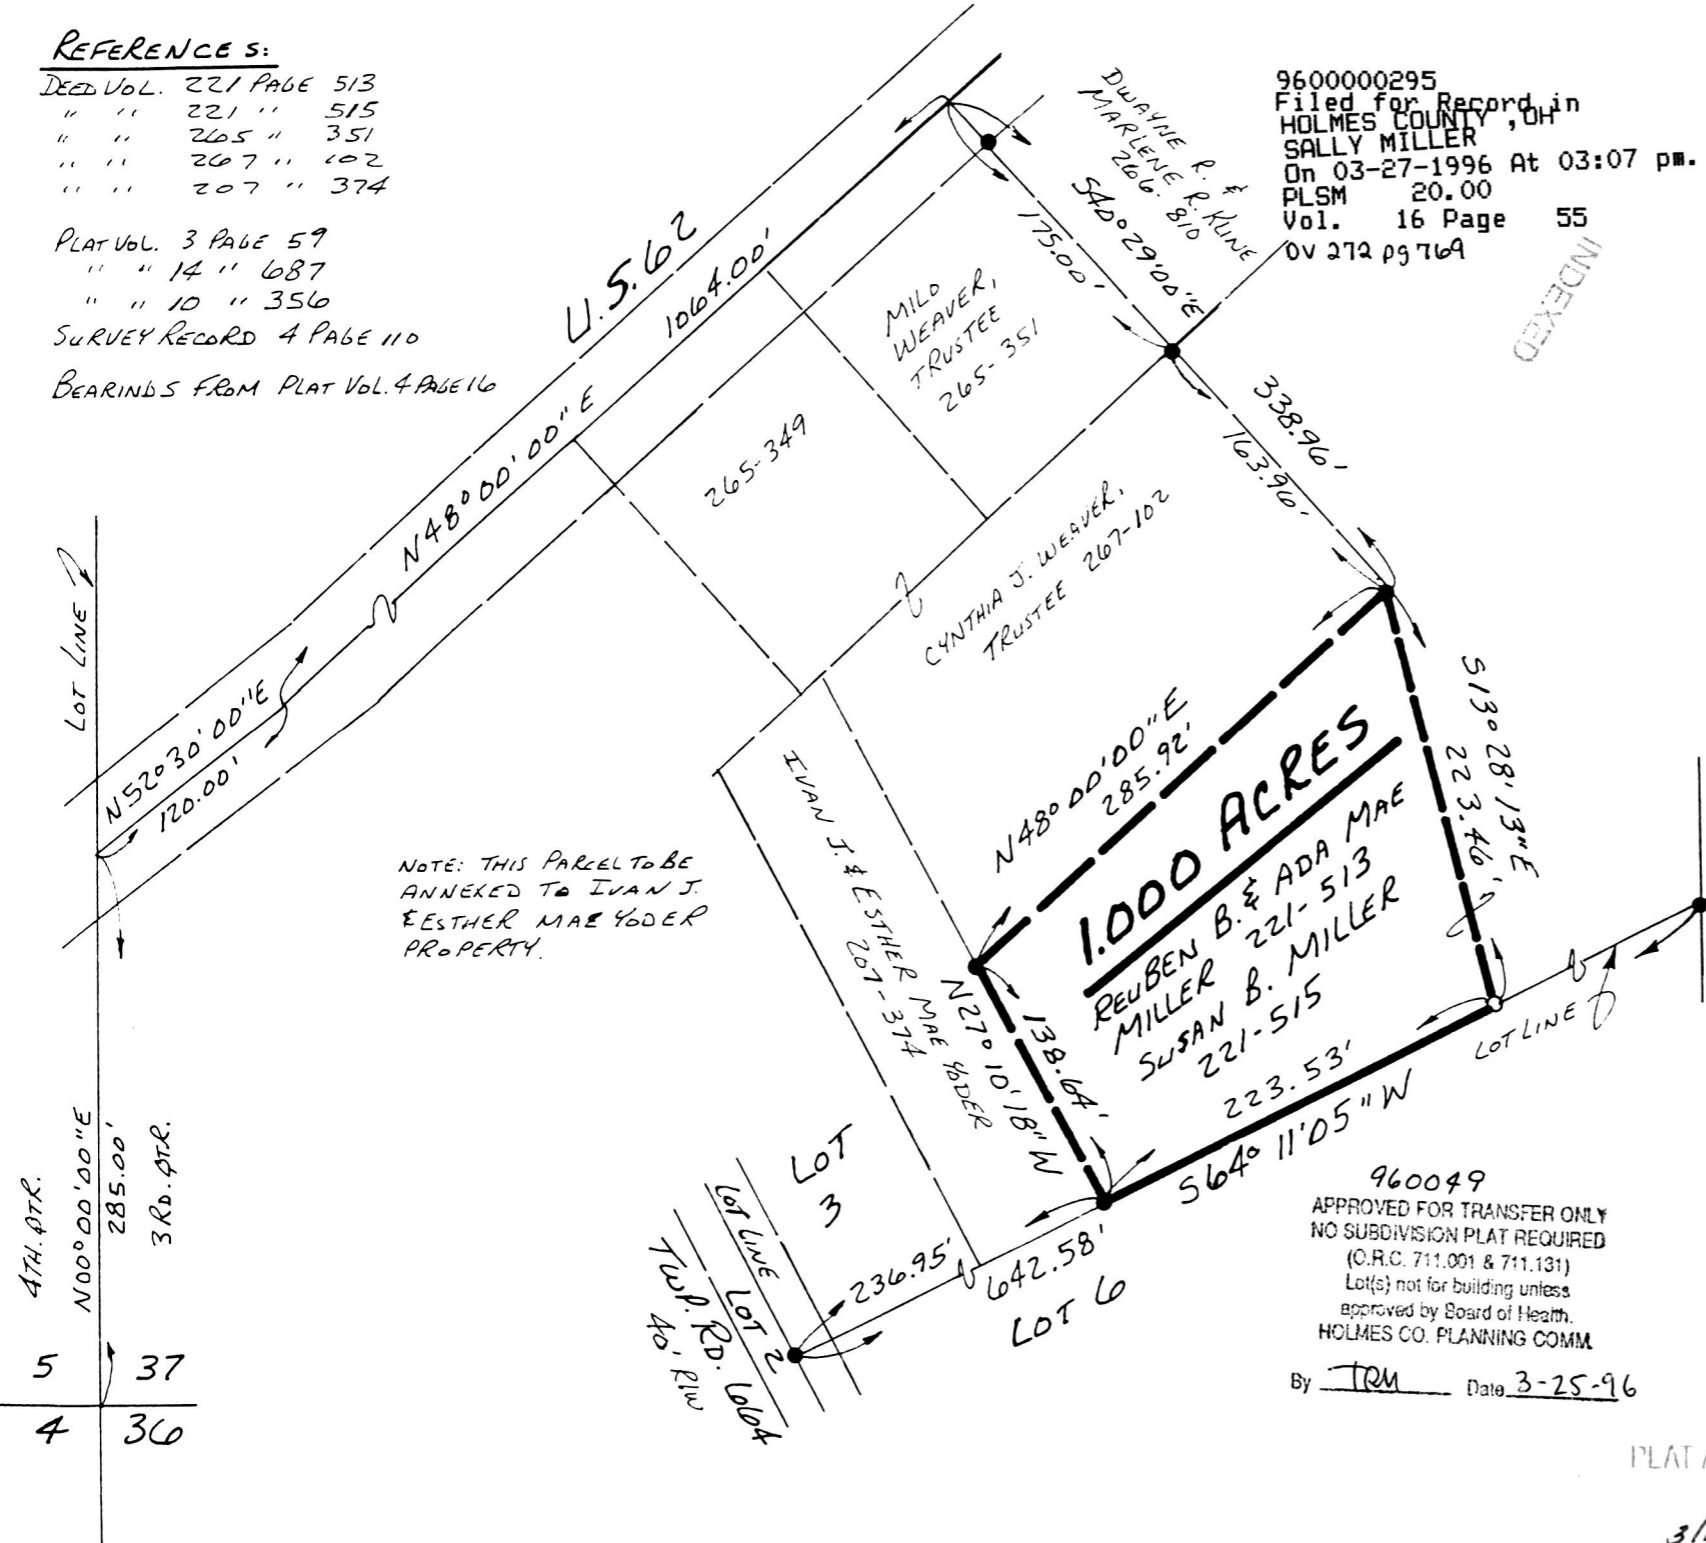 REFERENCES:
DEED VOL. 221 PAGE 513
" " 221 " 515
" " 265 " 351
" " 267 " 102
" " 207 " 374
PLAT VOL. 3 PAGE 59
" " 14 " 687
" " 10 " 356
SURVEY RECORD 4 PAGE 110
BEARINGS FROM PLAT VOL. 4 PAGE 16
9600000295
Filed for Record in
HOLMES COUNTY, OH
SALLY MILLER
On 03-27-1996 At 03:07 pm.
PLSM 20.00
Vol. 16 Page 55
OV 272 pg 769
INDEXED
DWAYNE R. &
MARLENE R. KLINE
266-810
S40°29'00"E
175.00'
338.96'
163.96'
U.S. 62
1064.00'
N48°00'00"E
MILO
WEAVER,
TRUSTEE
265-351
265-349
CYNTHIA J. WEAVER,
TRUSTEE 267-102
LOT LINE
N52°30'00"E
120.00'
NOTE: THIS PARCEL TO BE
ANNEXED TO IVAN J.
& ESTHER MAE YODER
PROPERTY.
IVAN J. & ESTHER MAE YODER
207-374
N48°00'00"E
285.92'
1.000 ACRES
REUBEN B. & ADA MAE
MILLER 221-513
SUSAN B. MILLER
221-515
S13°28'13"E
223.46'
N27°10'18"W
138.64'
223.53'
S64°11'05"W
LOT LINE
LOT
3
236.95'
642.58'
LOT 6
LOT LINE
LOT 2
TWP. RD. 664
40' R/W
4TH. QTR.
N00°00'00"E
285.00'
3RD. QTR.
5 37
4 36
960049
APPROVED FOR TRANSFER ONLY
NO SUBDIVISION PLAT REQUIRED
(O.R.C. 711.001 & 711.131)
Lot(s) not for building unless
approved by Board of Health.
HOLMES CO. PLANNING COMM.
By TRM Date 3-25-96
PLAT
3/